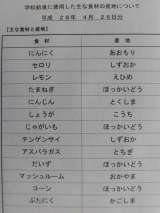 学校給食に使用した主な食材の産地について
平成 28年 4月 26日分
【主な食材と産地】
食材 産地
にんにく あおもり
セロリ しずおか
レモン えひめ
たまねぎ ほっかいどう
にんじん とくしま
しょうが こうち
じゃがいも ほっかいどう
チンゲンサイ しずおか
アスパラガス とちぎ
だいず ほっかいどう
マッシュルーム おかやま
コーン ほっかいどう
ぶたにく かごしま